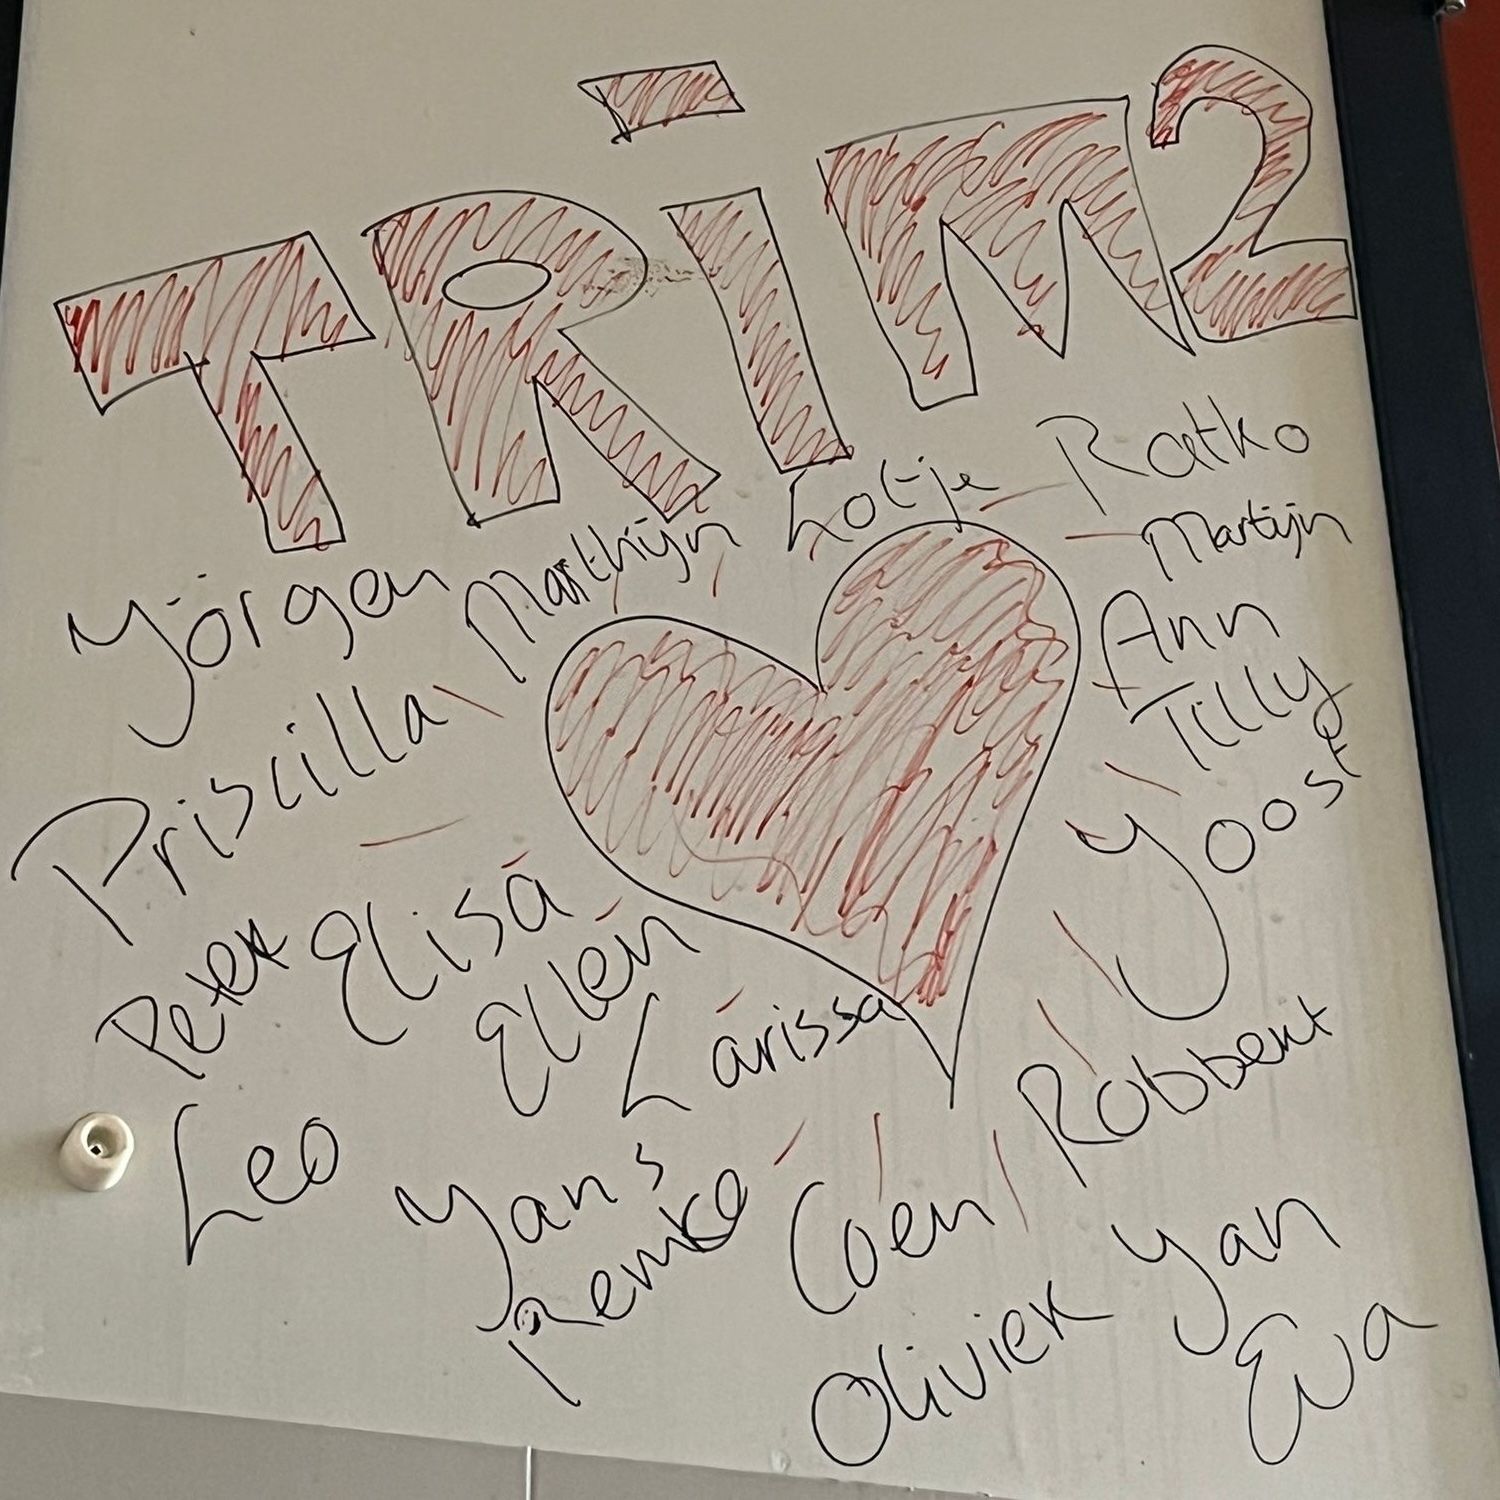 TRiM2
Lotje
Ratko
Yörgen
Matthijn
Martijn
Ann
Priscilla
Tilly
Yoost
Peter
Elisa
Ellen
Larissa
Robbert
Leo
Yans
Remko
Coen
Yan
Olivier
Eva